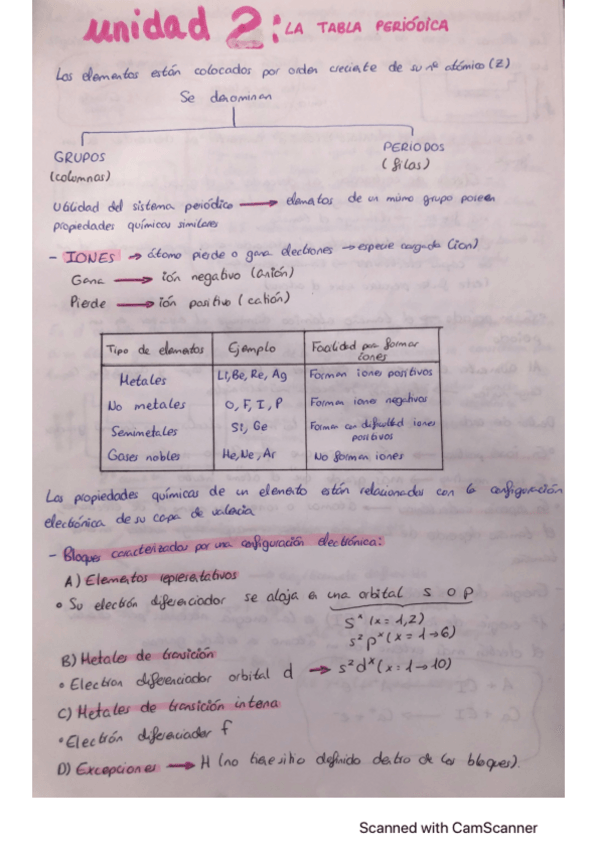 unidad 2: LA TABLA PERIÓDICA
Los elementos están colocados por orden creciente de su nº atómico (Z)
Se denominan
GRUPOS PERIODOS
(columnas) (filas)
Utilidad del sistema periódico → elementos de un mismo grupo poseen
propiedades químicas similares
- IONES → átomo pierde o gana electrones → especie cargada (ion)
Gana → ión negativo (anión)
Pierde → ión positivo (catión)
Tipo de elementos Ejemplo Facilidad para formar
iones
Metales Li, Be, Re, Ag Forman iones positivos
No metales O, F, I, P Forman iones negativos
Semimetales Si, Ge Forman con dificultad iones
positivos
Gases nobles He, Ne, Ar No forman iones
Las propiedades químicas de un elemento están relacionadas con la configuración
electrónica de su capa de valencia
- Bloques caracterizados por una configuración electrónica:
A) Elementos representativos
• Su electrón diferenciador se aloja en una orbital s o p
sˣ (x = 1,2)
s²pˣ (x = 1→6)
B) Metales de transición
• Electron diferenciador orbital d → s²dˣ (x = 1→10)
C) Metales de transición interna
• Electrón diferenciador f
D) Excepciones → H (no tiene sitio definido dentro de los bloques).
Scanned with CamScanner